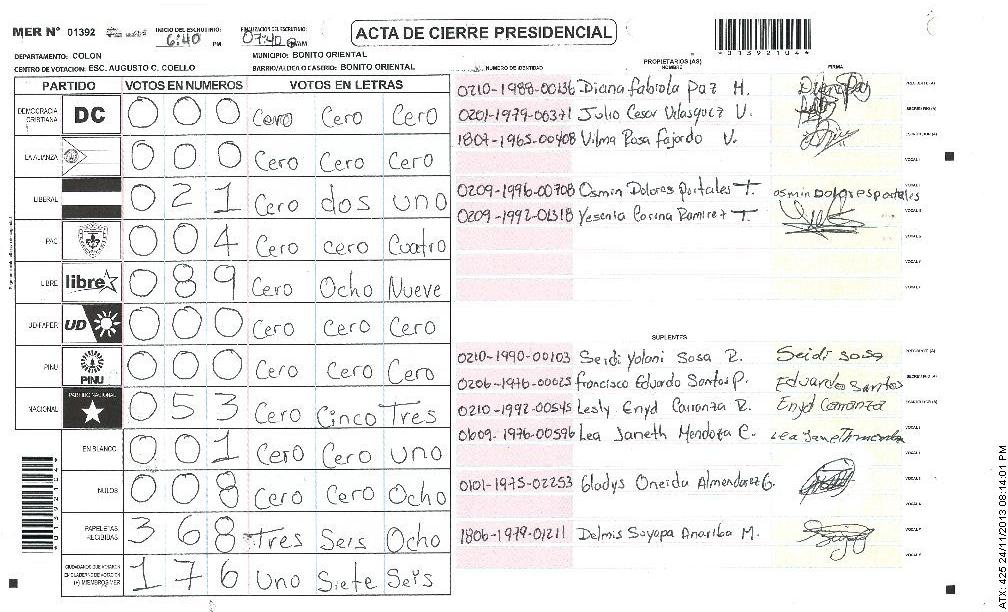 MER Nº 01392 INICIO DEL ESCRUTINIO: 6:40 PM FINALIZACION DEL ESCRUTINIO: 07:40 AM
ACTA DE CIERRE PRESIDENCIAL
DEPARTAMENTO: COLON MUNICIPIO: BONITO ORIENTAL
CENTRO DE VOTACION: ESC. AUGUSTO C. COELLO BARRIO/ALDEA O CASERIO: BONITO ORIENTAL
PARTIDO VOTOS EN NUMEROS VOTOS EN LETRAS
DEMOCRACIA CRISTIANA DC 0 0 0 Cero Cero Cero
LA ALIANZA 0 0 0 Cero Cero Cero
LIBERAL 0 2 1 Cero dos uno
PAC 0 0 4 Cero cero Cuatro
LIBRE libre 0 8 9 Cero Ocho Nueve
UD-FAPER UD 0 0 0 Cero Cero Cero
PINU PINU 0 0 0 Cero Cero Cero
NACIONAL PARTIDO NACIONAL 0 5 3 Cero Cinco Tres
EN BLANCO 0 0 1 Cero Cero uno
NULOS 0 0 8 Cero Cero Ocho
PAPELETAS RECIBIDAS 3 6 8 Tres Seis Ocho
CIUDADANOS QUE VOTARON EN CUADERNO DE VOTACION (+) MIEMBROS MER 1 7 6 Uno Siete Seis
PROPIETARIOS (AS)
NUMERO DE IDENTIDAD NOMBRE FIRMA
0210-1988-00136 Diana fabiola Paz M.
0201-1979-00371 Julio Cesar Velasquez V.
1807-1965-00408 Vilma Rosa Fajardo V.
0209-1996-00708 Osmin Dolores Portales T. osmin Dolores portales
0209-1992-01318 Yesenia Corina Ramirez T.
SUPLENTES
0210-1990-00103 Seidi Yolani Sosa R. Seidi sosa
0206-1976-00025 francisco Eduardo Santos P. Eduardo Santos
0210-1992-00545 Lesly Enyd Carranza R. Enyd Carranza
1609-1976-00596 Lea Janeth Mendoza C.
0101-1975-02253 Gladys Oneida Almendarez G.
1806-1979-01211 Delmis Soyapa Anariba M.
ATX: 425 24/11/2013 08:14:01 PM